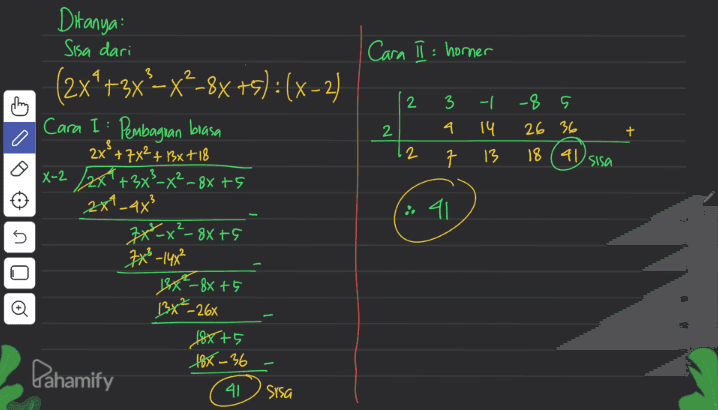 Ditanya:
Sisa dari
(2x⁴+3x³-x²-8x+5):(x-2)
Cara I : Pembagian biasa
2x³+7x²+13x+18
x-2 2x⁴+3x³-x²-8x+5
2x⁴-4x³ -
7x³-x²-8x+5
7x³-14x² -
13x²-8x+5
13x²-26x -
18x+5
18x-36 -
41 sisa
Cara II : horner
2 3 -1 -8 5
2 4 14 26 36 +
2 7 13 18 41 sisa
∴ 41
Pahamify